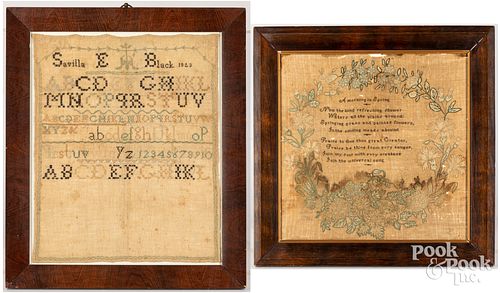 Savilla E Black 1823
ABCDEFGHIJKL
MNOPQRSTUV
ABCDEFGHIJKLMNOPQRSTUVW
XYZ
abcdefghijklmnop
qrstuv yz 12345678910
ABCDEFGHIJKL
A morning in Spring
Now the kind refreshing shower
Waters all the plains around
Springing grass and painted flowers,
In the smiling meads abound
Praise to thee thou great Creator,
Praise be thine from every tongue,
Join my soul with every creature
Join the universal song
POOK
& POOK
Inc.